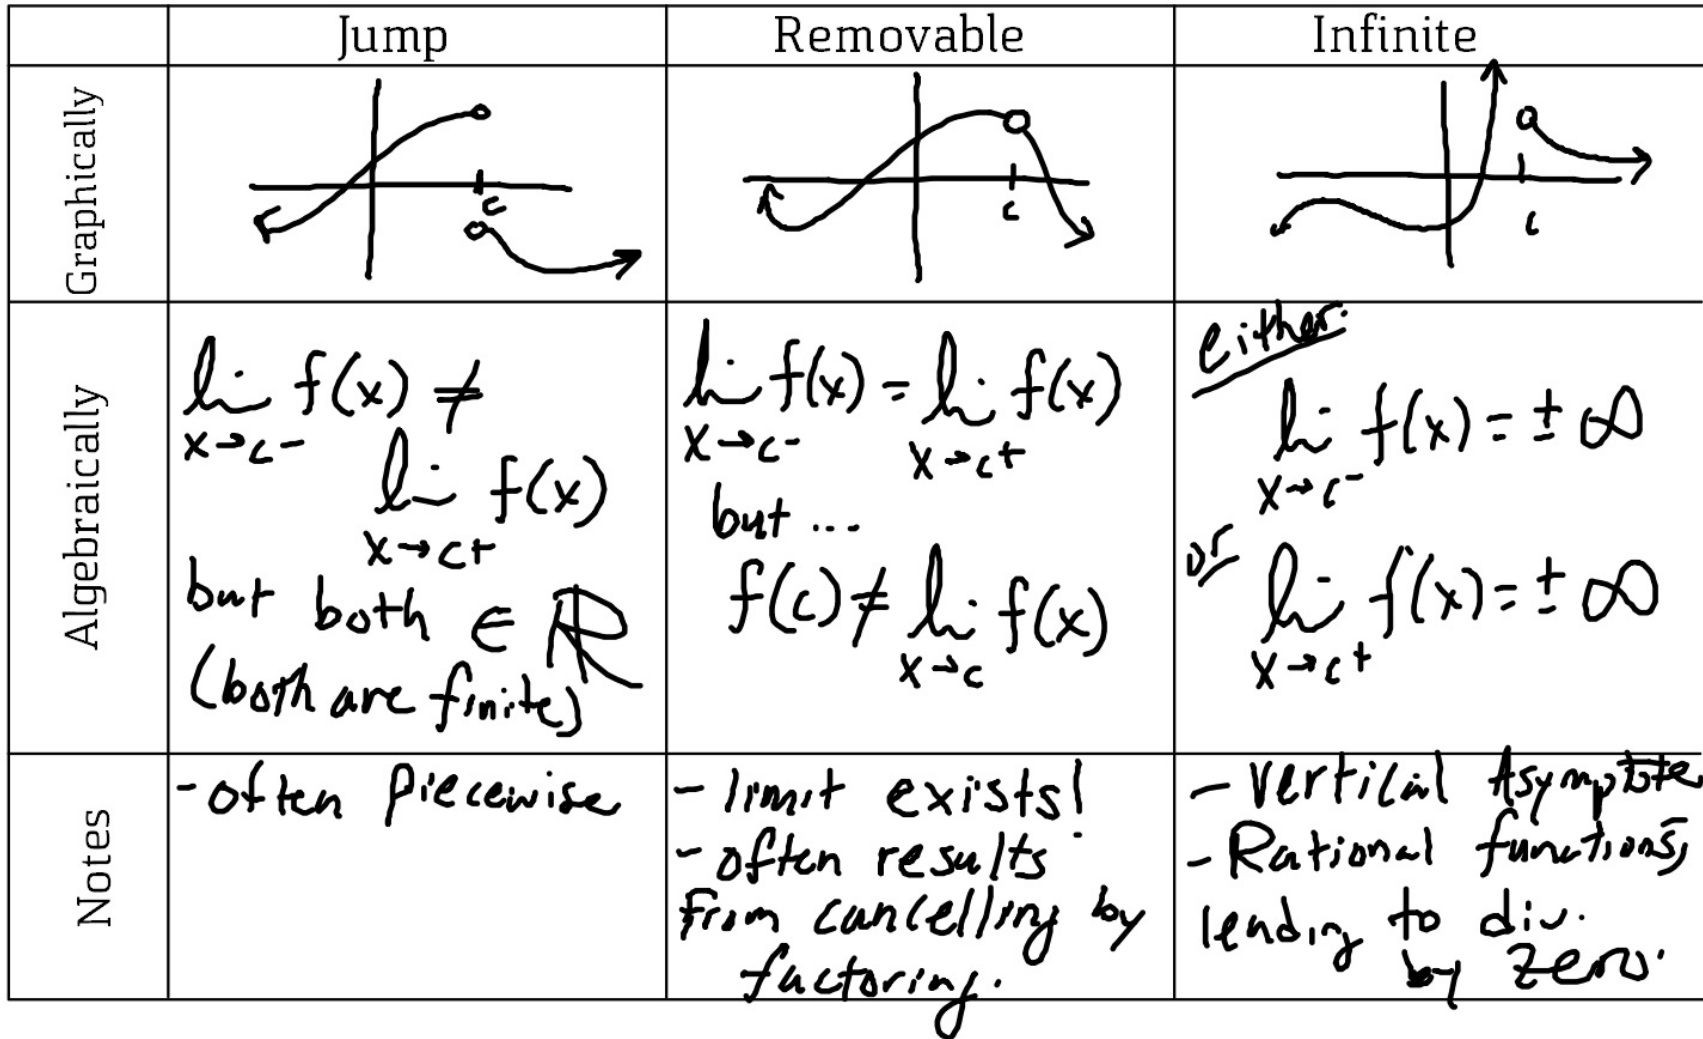 Jump Removable Infinite
Graphically
c
c
c
Algebraically
lim f(x) ≠
x→c-
lim f(x)
x→c+
but both ∈ ℝ
(both are finite)
lim f(x) = lim f(x)
x→c- x→c+
but ...
f(c) ≠ lim f(x)
x→c
either
lim f(x) = ± ∞
x→c-
or
lim f(x) = ± ∞
x→c+
Notes
- often piecewise
- limit exists!
- often results
from cancelling by
factoring.
- Vertical Asymptote
- Rational functions,
leading to div.
by zero.